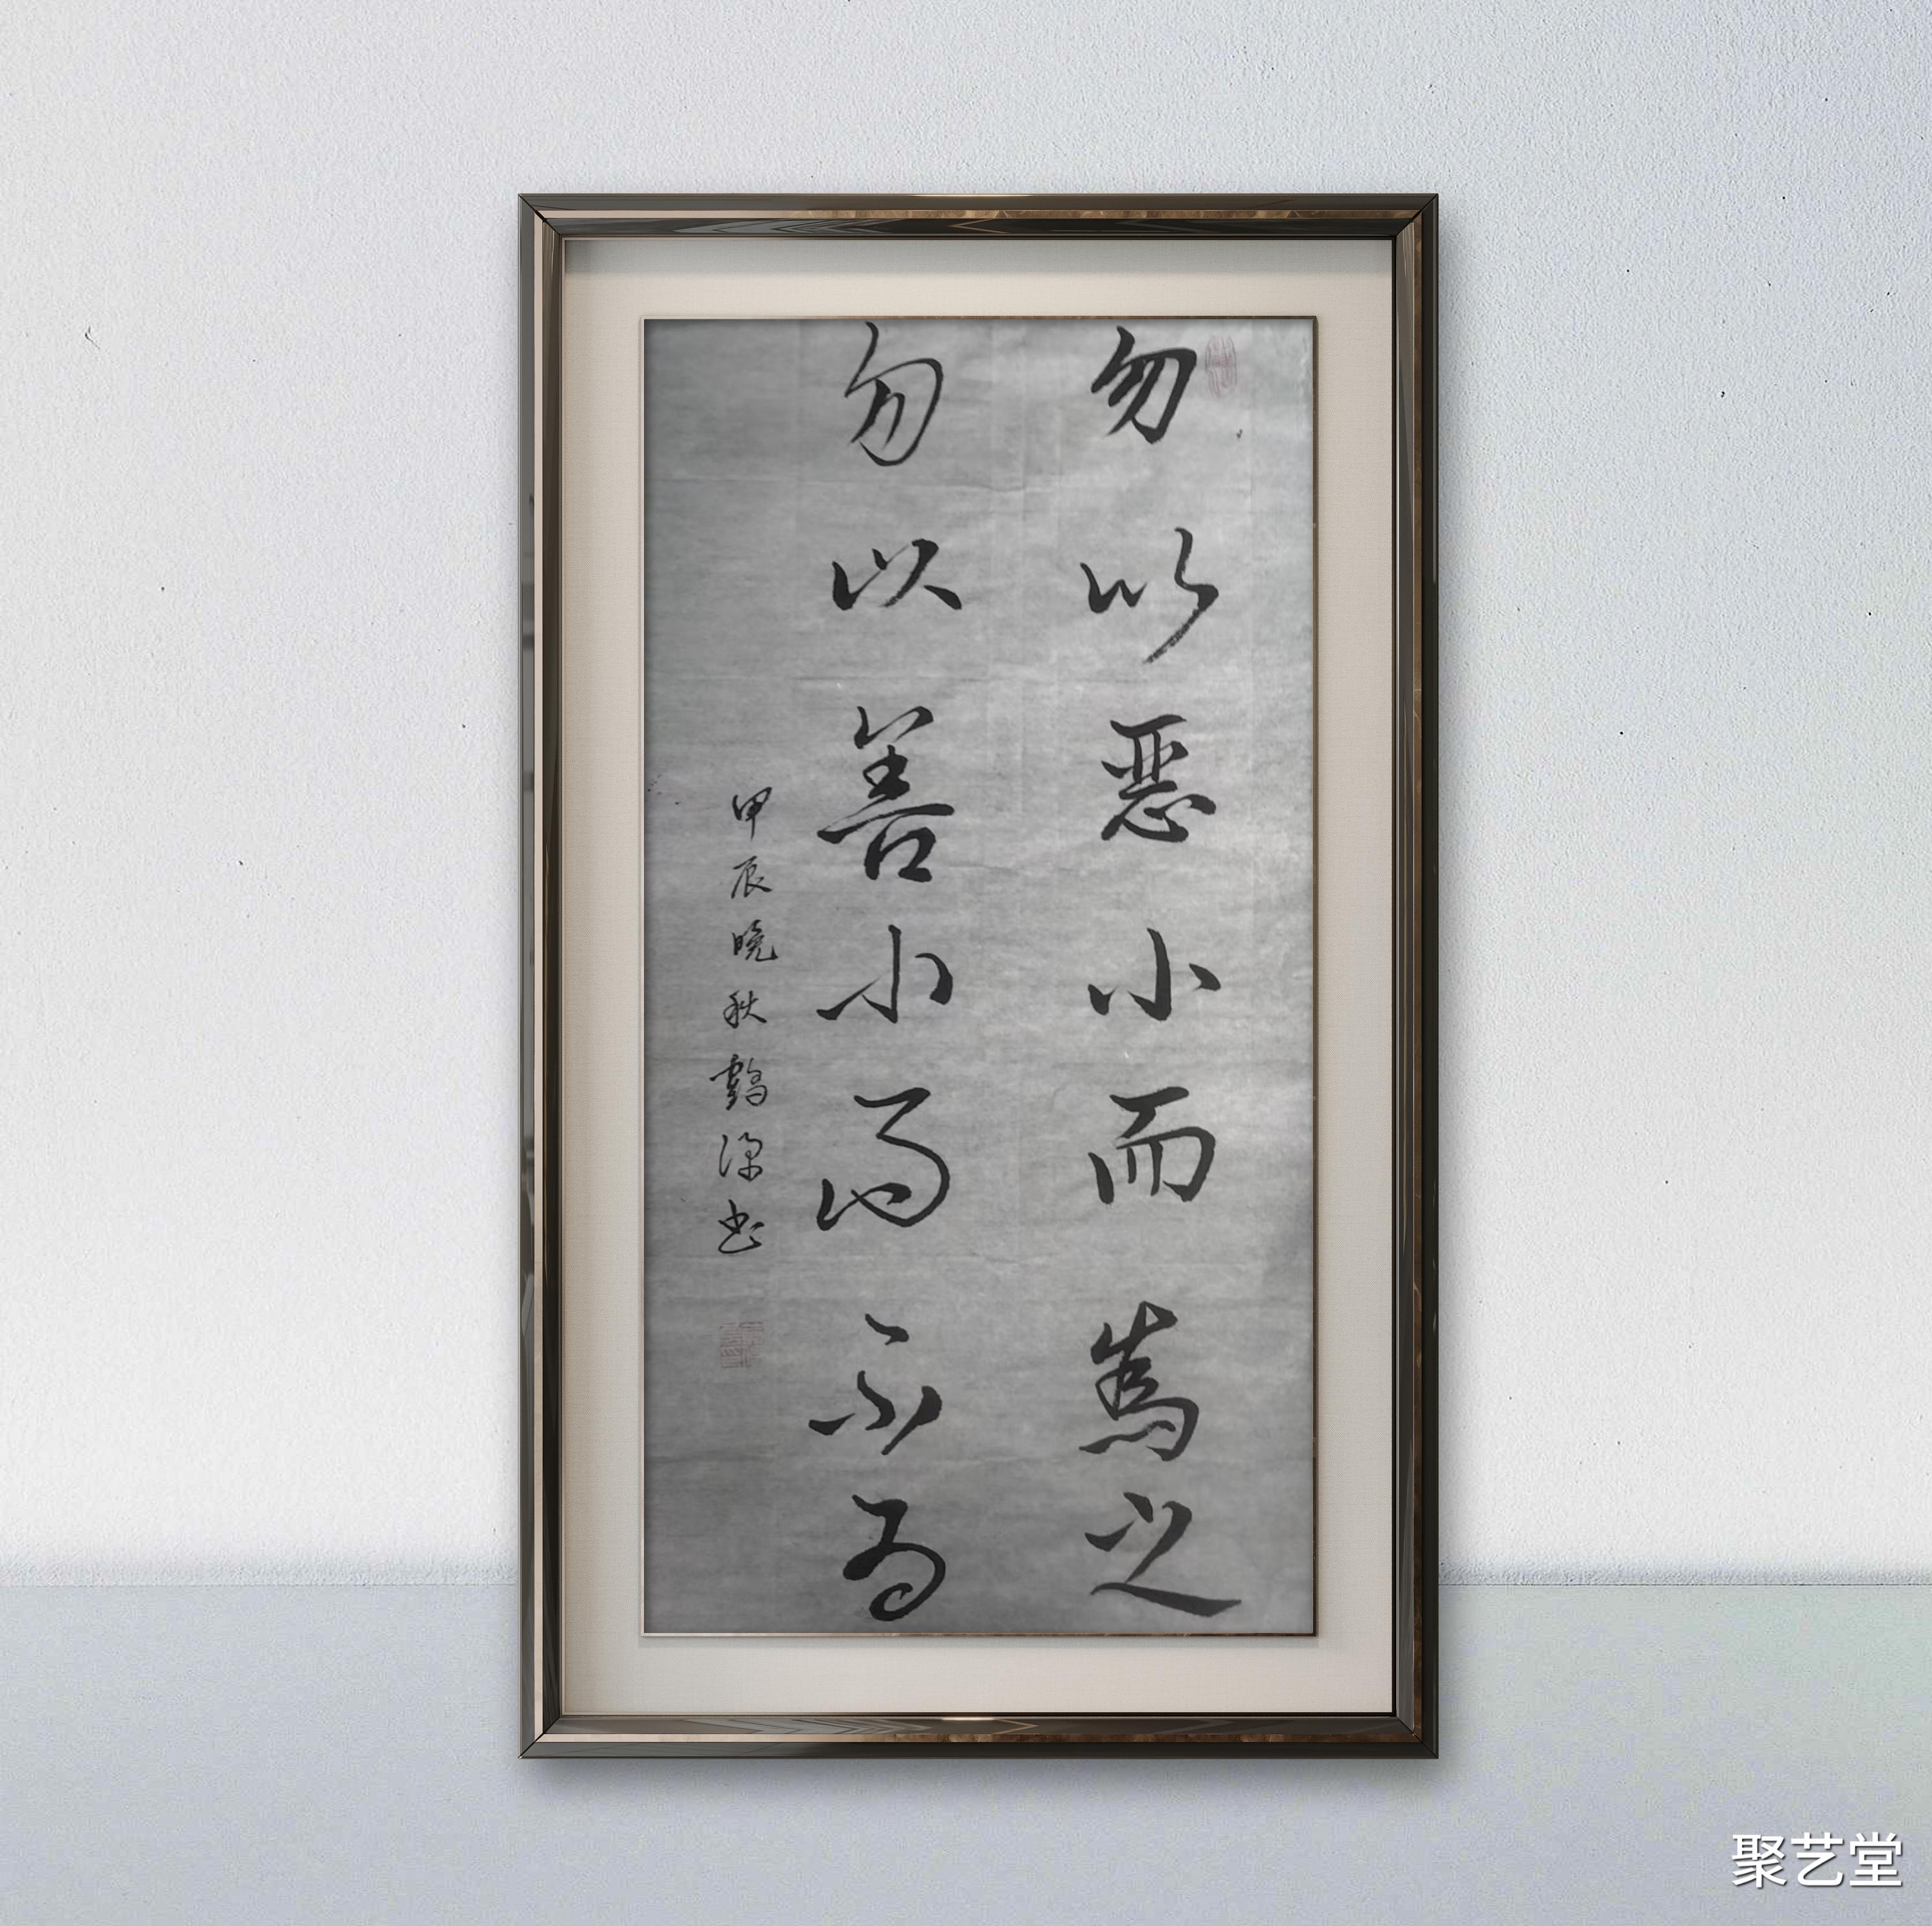 勿以惡小而為之
勿以善小而不為
甲辰晚秋鶴书
聚艺堂